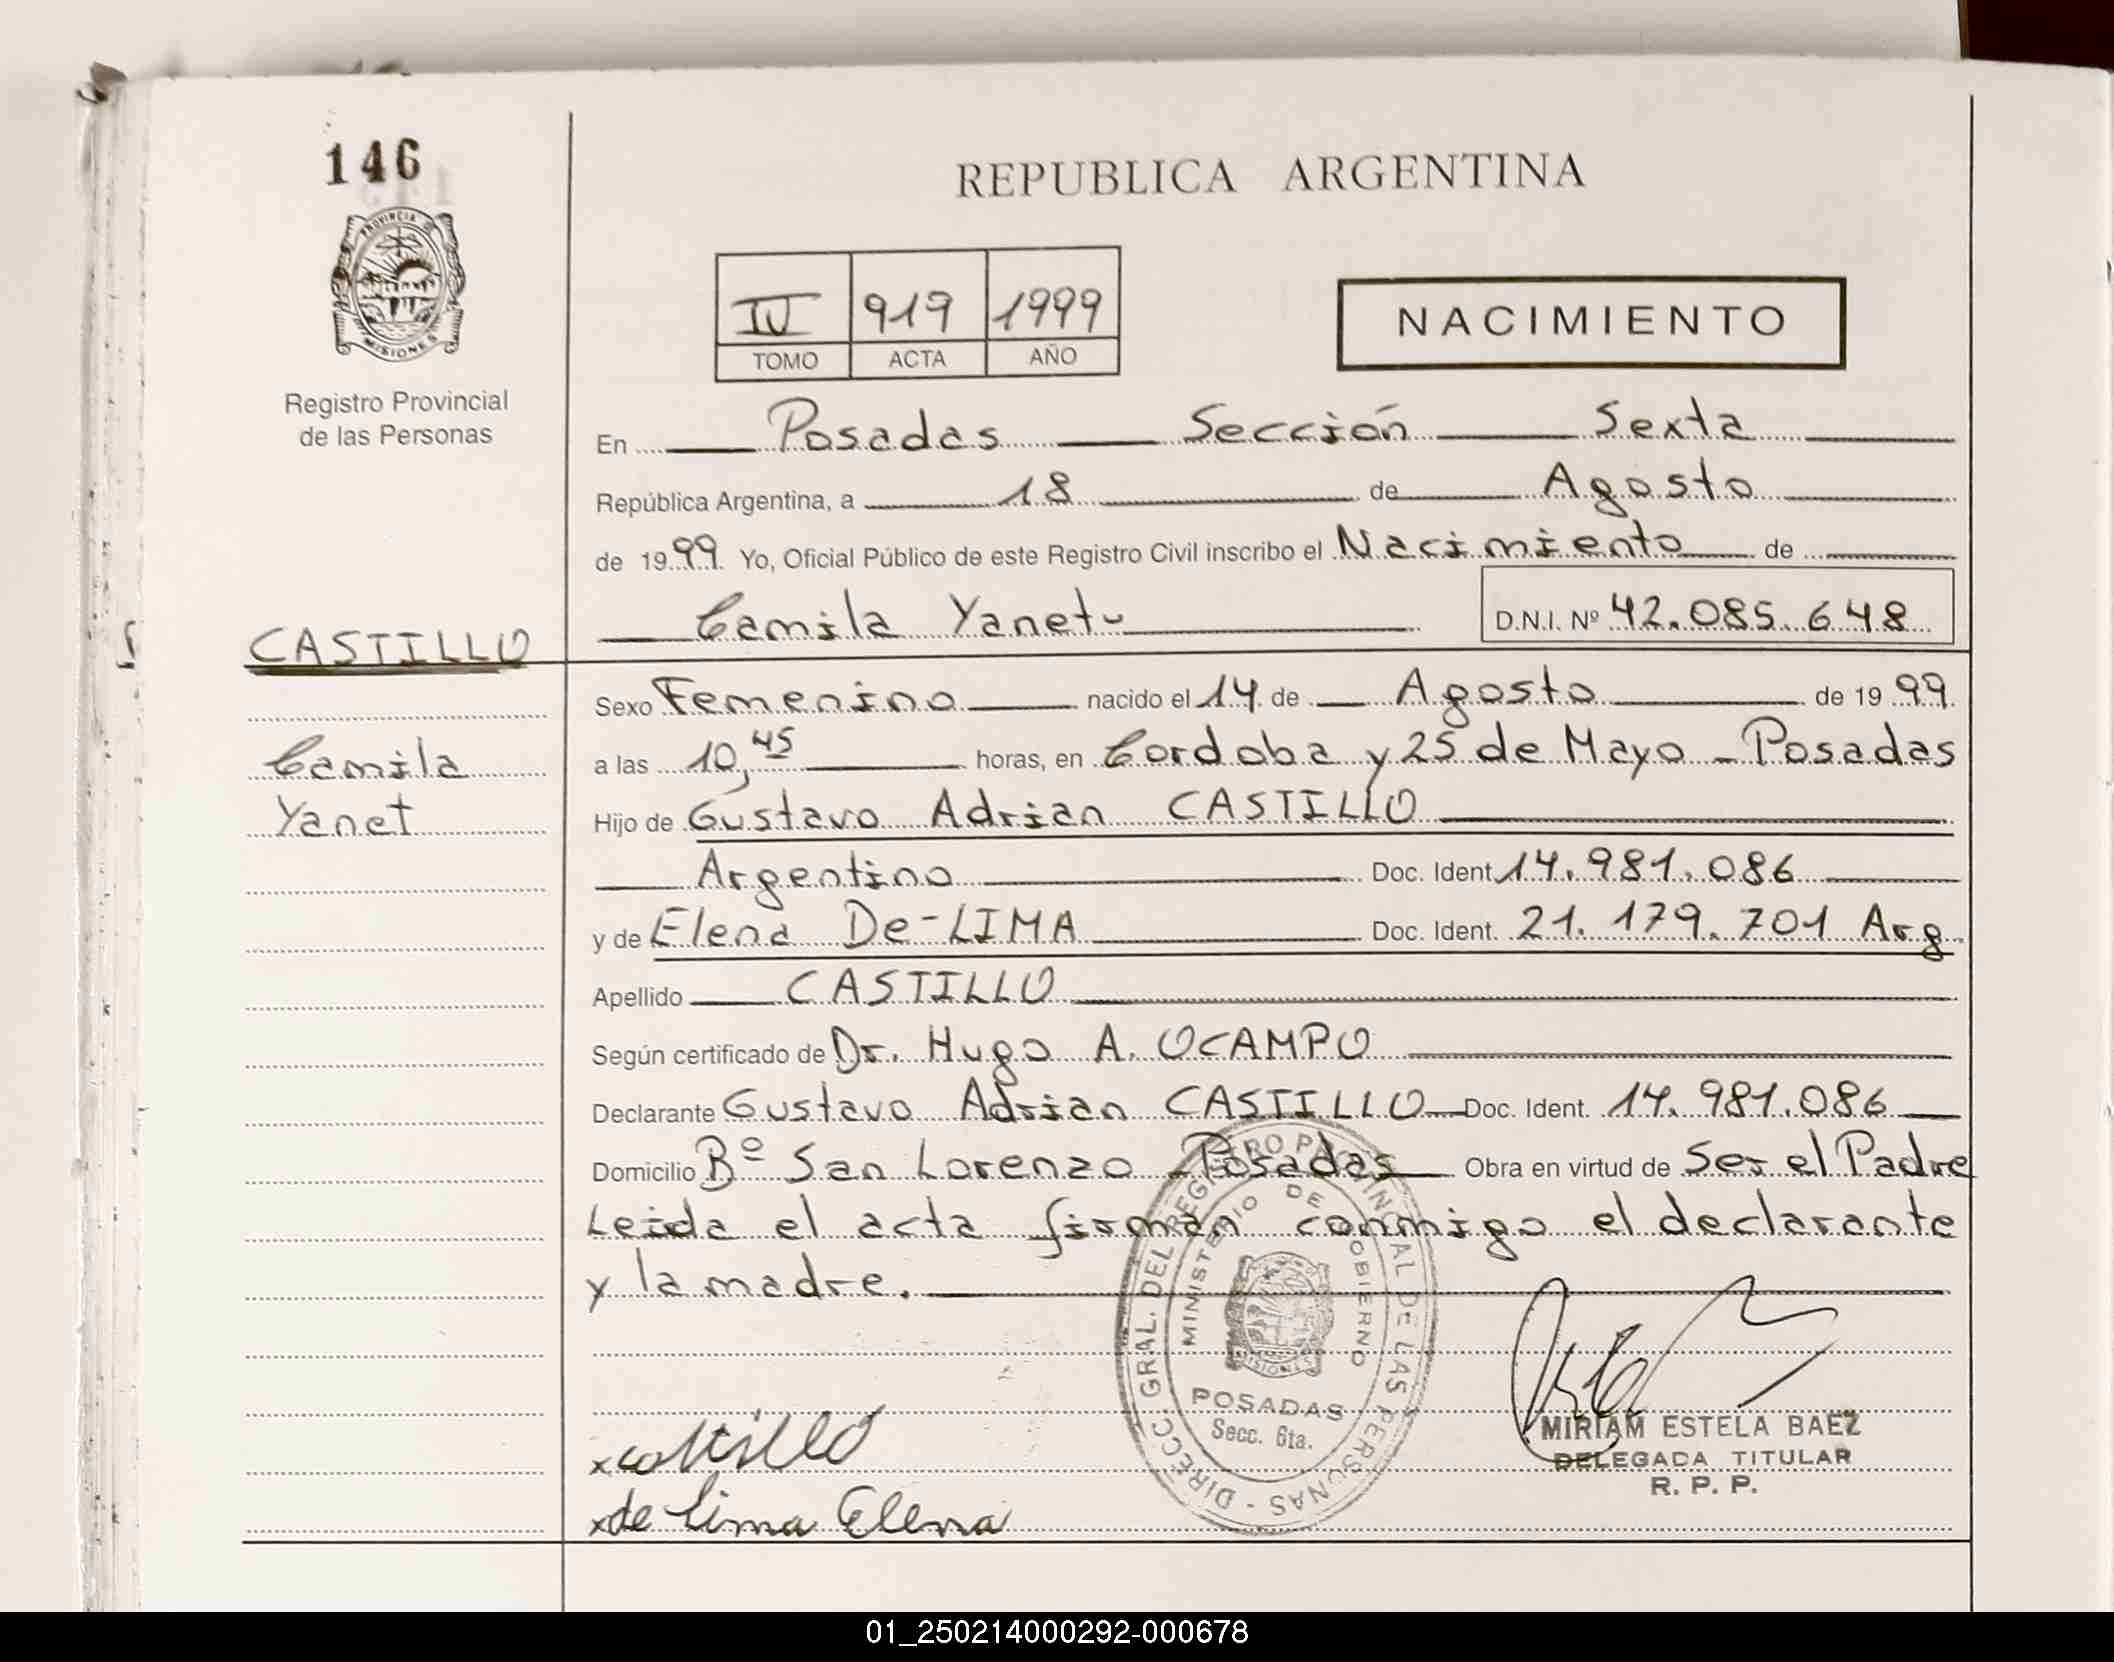 146
REPUBLICA ARGENTINA
PROVINCIA DE
MISIONES
Registro Provincial
de las Personas
IV 919 1999
TOMO ACTA AÑO
NACIMIENTO
En Posadas Sección Sexta
República Argentina, a 18 de Agosto
de 1999 Yo, Oficial Público de este Registro Civil inscribo el Nacimiento de
Camila Yanet D.N.I. Nº 42.085.648
CASTILLO
Camila
Yanet
Sexo Femenino nacido el 14 de Agosto de 1999
a las 10,45 horas, en Cordoba y 25 de Mayo - Posadas
Hijo de Gustavo Adrian CASTILLO
Argentino Doc. Ident 14.981.086
y de Elena De-LIMA Doc. Ident. 21.179.701 Arg.
Apellido CASTILLO
Según certificado de Dr. Hugo A. OCAMPO
Declarante Gustavo Adrian CASTILLO Doc. Ident. 14.981.086
Domicilio Bº San Lorenzo - Posadas Obra en virtud de Ser el Padre
Leida el acta firman conmigo el declarante
y la madre.
DIRECC. GRAL. DEL REGISTRO PROVINCIAL DE LAS PERSONAS -
MINISTERIO DE GOBIERNO
MISIONES
POSADAS
Secc. 6ta.
x castillo
x de Lima Elena
MIRIAM ESTELA BAEZ
DELEGADA TITULAR
R. P. P.
01_250214000292-000678